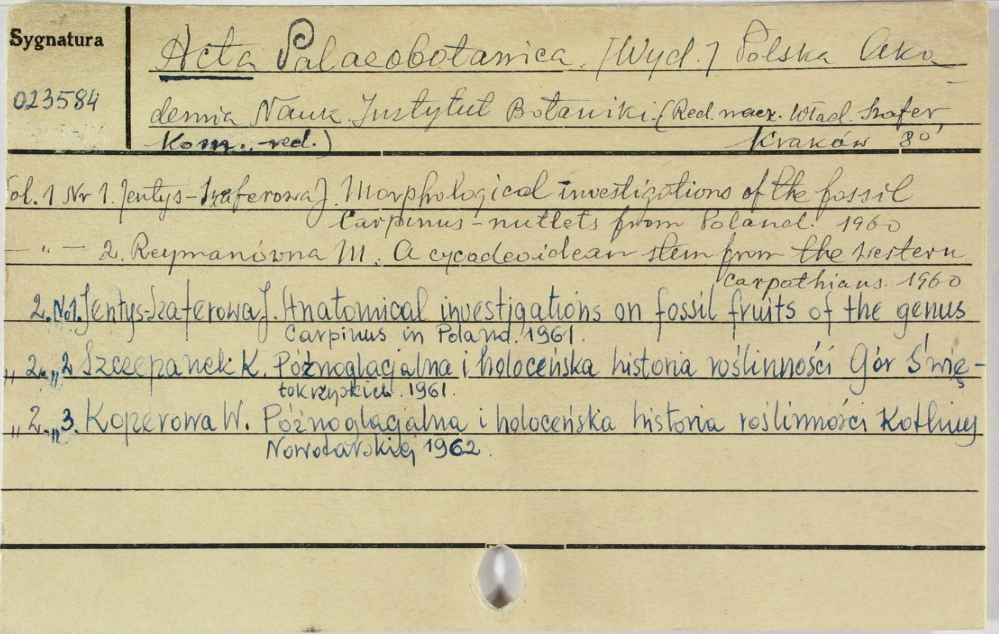 Sygnatura
023584
Acta Palaeobotanica. [Wyd.] Polska Aka
demia Nauk. Instytut Botaniki. (Red. nacz. Wład. Szafer,
Kom. red.) Kraków 8°
Vol. 1 Nr 1. Jentys-Szaferowa J. Morphological investigations of the fossil
Carpinus-nutlets from Poland. 1960
— " — 2. Reymanówna M. A cycadeoidean stem from the western
Carpathians. 1960
2. Nr 1. Jentys-Szaferowa J. Anatomical investigations on fossil fruits of the genus
Carpinus in Poland. 1961.
" 2. " 2 Szczepanek K. Późnoglacjalna i holoceńska historia roślinności Gór Świę-
tokrzyskich. 1961.
" 2. " 3. Koperowa W. Późnoglacjalna i holoceńska historia roślinności Kotliny
Nowotarskiej 1962.